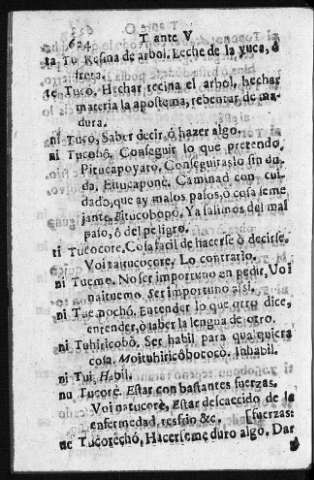 624
T ante V
ta Tu Resina de arbol. Leche de la yuca, ó
fruta.
te Tuco, Hechar recina el arbol, hechar
materia la apostema, rebentar de ma-
dura.
ni Tuco, Saber decir ó hazer algo.
ni Tucobô, Conseguir lo que pretendo.
Pitucapoyaro, Conseguiraslo sin du-
da, Etucapone, Caminad con cui-
dado, que ay malos pasos, ó cosa seme
jante. Etucobopó, Ya salimos del mal
paso, ó del peligro.
ti Tucocore. Cosa facil de hacerse ò decirse.
Voi naitucocore. Lo contrario.
ni Tueme. No ser importuno en pedir, Voi
naitueme Ser importuno asi.
ni Tue nochó. Entender lo que otro dice,
entender, ò saber la lengua de otro.
ni Tuhiricobô. Ser habil para qualquiera
cosa. Moituhiricôbococo. Inhabil.
ni Tui. Habil.
nu Tucorè. Estar con bastantes fuerzas.
Voi natucorè, Estar descaecido de la
enfermedad, resfrio &c. [fuerzas:
ne Tucorechó, Hacerseme duro algo, Dar